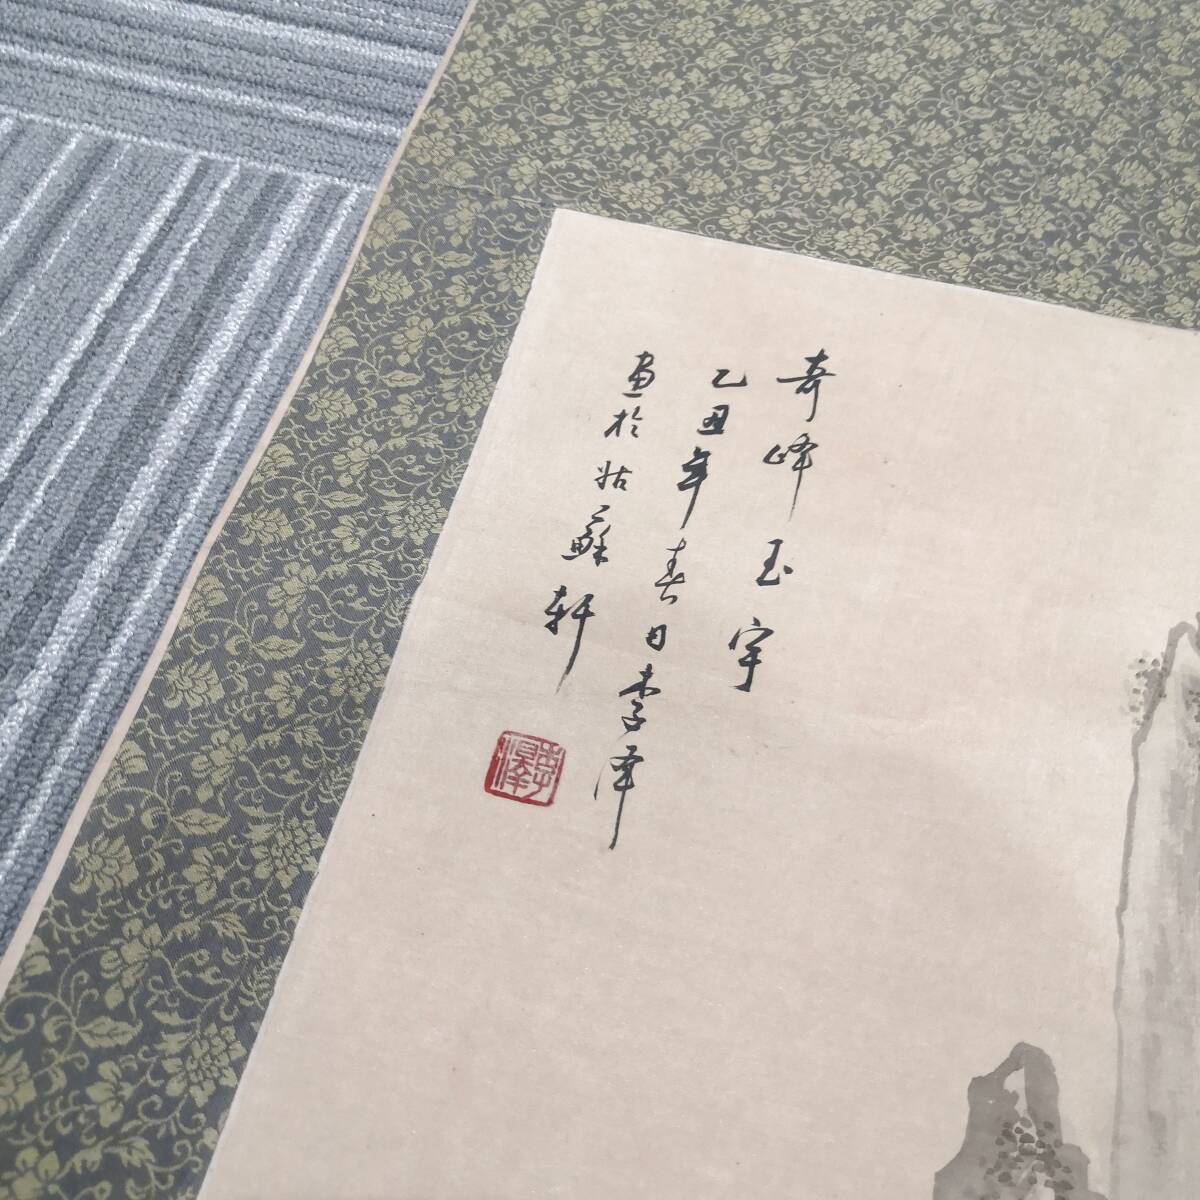 奇峰玉宇
乙丑年春日李泽
画於姑蘇軒
李澤